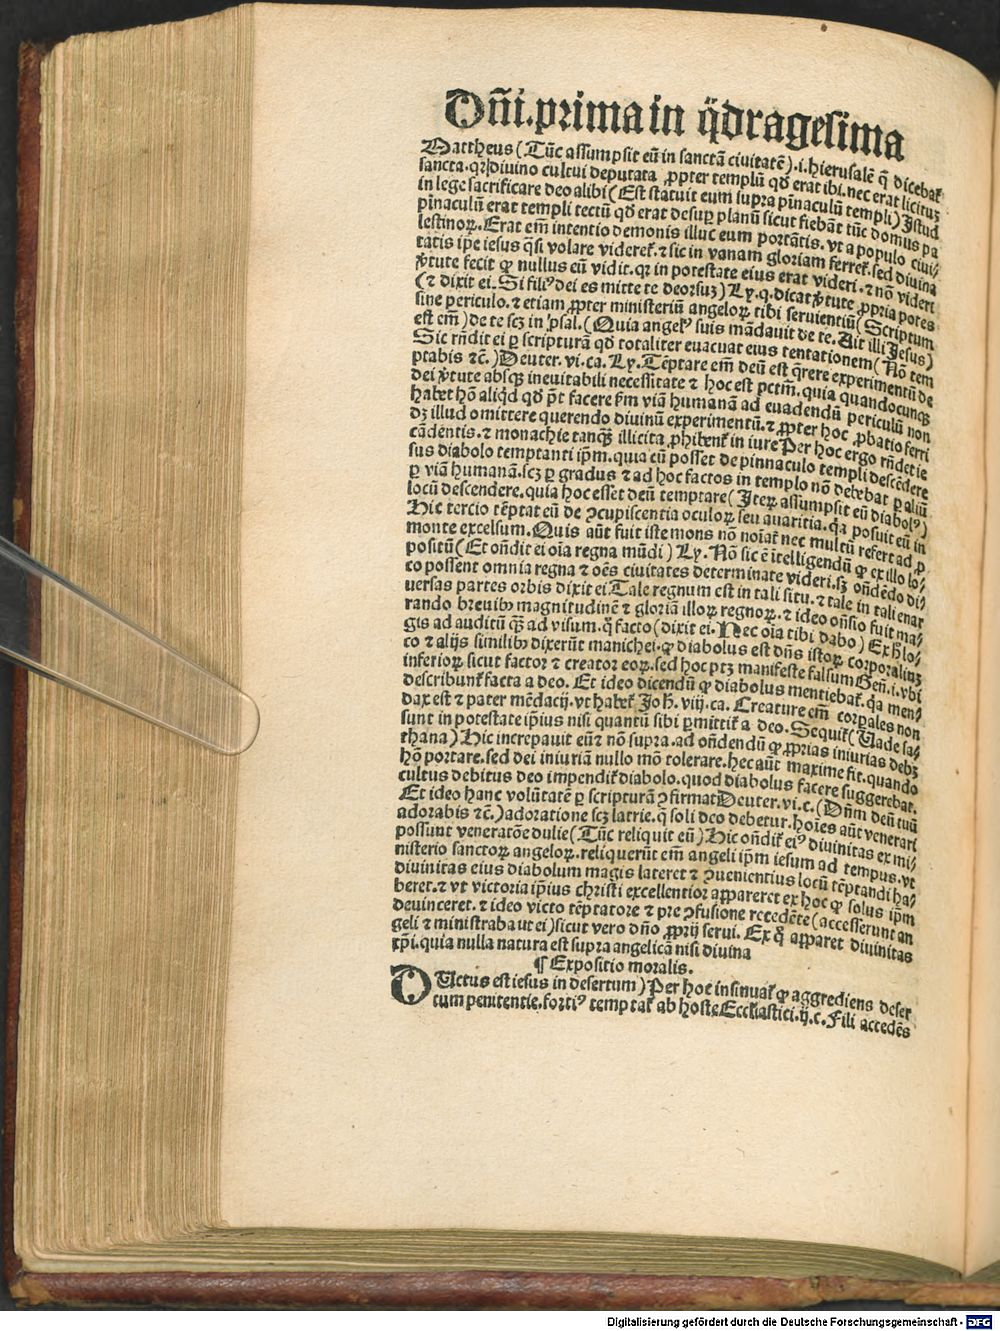 Dñi.prima in q̃dragesima
Mattheus (Tũc assumpsit eũ in sanctã ciuitatẽ).i.hierusalẽ q̃ dicebat̃
sancta.qꝛ diuino cultui deputata ꝓpter templũ qď erat ibi.nec erat licitũ
in lege sacrificare deo alibi (Est statuit eum supra pĩnaculũ templi) Istud
pĩnaculũ erat templi tectũ qď erat desuꝑ planũ sicut fiebãt tũc domus pa
lestinoꝝ. Erat em̃ intentio demonis illuc eum portãtis. vt a populo ciui⸗
tatis ip̃e iesus q̃si volare videret̃. ⁊ sic in vanam gloriam ferret̃. sed diuina
ꝟtute fecit ꝙ nullus eũ vidit. qꝛ in potestate eius erat videri. ⁊ nõ videri
(⁊ dixit ei. Si filiꝰ dei es mitte te deorsuꝫ) Ly. q. dicat ꝟtute ꝓpria potes
sine periculo. ⁊ etiam ꝓpter ministeriũ angeloꝝ tibi seruientiũ (Scriptum
est em̃) de te scꝫ in psal. (Quia angelꝭ suis mãdauit de te. Ait illi Jesus)
Sic rñdit ei ꝑ scripturã qď totaliter euacuat eius tentationem (Nõ tem
ptabis ⁊c̃.) Deuter. vi. ca. Ly. Tẽptare em̃ deũ est q̃rere experimentũ de
dei ꝟtute absqꝫ ineuitabili necessitate ⁊ hoc est pctm̃. quia quandocunqꝫ
habet hõ aliq̃d qď p̃t facere ꝑm viã humanã ad euadendũ periculũ non
dꝫ illud omittere querendo diuinũ experimentũ. ⁊ ꝓpter hoc ꝓbatio ferri
cãdentis. ⁊ monachie tanqꝫ̃ illicita ꝓhibent̃ in iure Per hoc ergo rñdet ie
sus diabolo temptanti ip̃m. quia cũ posset de pinnaculo templi descẽdere
ꝑ viã humanã. scꝫ ꝑ gradus ⁊ ad hoc factos in templo nõ debebat ꝑ aliũ
locũ descendere. quia hoc esset deũ temptare (Iteꝝ assumpsit eũ diabolꝰ)
Hic tercio tẽptat eũ de ꝯcupiscentia oculoꝝ seu auaritia. q̃a posuit eũ in
monte excelsum. Quis aũt fuit iste mons nõ noĩat̃ nec multũ refert ad ꝓ
positũ (Et oñdit ei oĩa regna mũdi) Ly. Nõ sic ẽ ĩtelligendũ ꝙ ex illo lo⸗
co possent omnia regna ⁊ oẽs ciuitates determinate videri. sꝫ oñdẽdo di⸗
uersas partes orbis dixit ei Tale regnum est in tali situ. ⁊ tale in tali enar
rando breuibꝰ magnitudinẽ ⁊ gloriã illoꝝ regnoꝝ. ⁊ ideo oñsio fuit ma⸗
gis ad auditũ qꝫ̃ ad visum. q̃ facto (dixit ei. Nec oĩa tibi dabo) Ex h̃ lo⸗
co ⁊ alijs similibꝰ dixerũt manichei. ꝙ diabolus est dñs istoꝝ corporaliũ
inferioꝝ sicut factor ⁊ creator eoꝝ. sed hoc ptꝫ manifeste falsum Geñ. i. vbi
describunt̃ facta a deo. Et ideo dicendũ ꝙ diabolus mentiebat̃. q̃a men⸗
dax est ⁊ pater mẽdacij. vt habet̃ Joh̃. viij. ca. Creature em̃ corꝑales non
sunt in potestate ip̃ius nisi quantũ sibi ꝑmittit̃ a deo. Sequit̃ (Vade sa⸗
thana) Hic increpauit eũ ⁊ nõ supra. ad oñdendũ ꝙ ꝓprias iniurias debꝫ
hõ portare. sed dei iniuriã nullo mõ tolerare. hec aũt maxime fit. quando
cultus debitus deo impendit̃ diabolo. quod diabolus facere suggerebat.
Et ideo hanc volũtatẽ ꝑ scripturã ꝯfirmat Deuter. vi. c. (Dñm deũ tuũ
adorabis ⁊c̃.) adoratione scꝫ latrie. q̃ soli deo debetur. hoĩes aũt venerari
possunt veneratõe dulie (Tũc reliquit eũ) Hic oñdit̃ eiꝰ diuinitas ex mi⸗
nisterio sanctoꝝ angeloꝝ. reliquerũt em̃ angeli ip̃m iesum ad tempus. vt
diuinitas eius diabolum magis lateret ⁊ ꝯuenientius locũ tẽptandi ha⸗
beret. ⁊ vt victoria ip̃ius christi excellentior appareret ex hoc ꝙ solus ip̃m
deuinceret. ⁊ ideo victo tẽptatore ⁊ pre ꝯfusione recedẽte (accesserunt an
geli ⁊ ministrabãt ei) sicut vero dño ꝓprij serui. Ex q̃ apparet diuinitas
xp̃i. quia nulla natura est supra angelicã nisi diuina
¶ Expositio moralis.
DUctus est iesus in desertum) Per hoc insinuat̃ ꝙ aggrediens deser
tum penitentie. fortiꝰ temptat̃ ab hoste Ecclĩastici. ij. c. Fili accedẽs
Digitalisierung gefördert durch die Deutsche Forschungsgemeinschaft - DFG